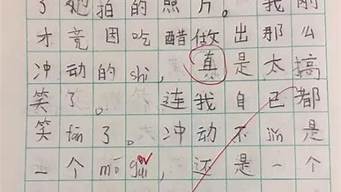 了她拍的照片。我刚
才竟因吃醋做出那么
冲动的shi，真是太搞
笑了。连我自己都
笑fan了。冲动不jin是
一个mó guǐ，还是一个